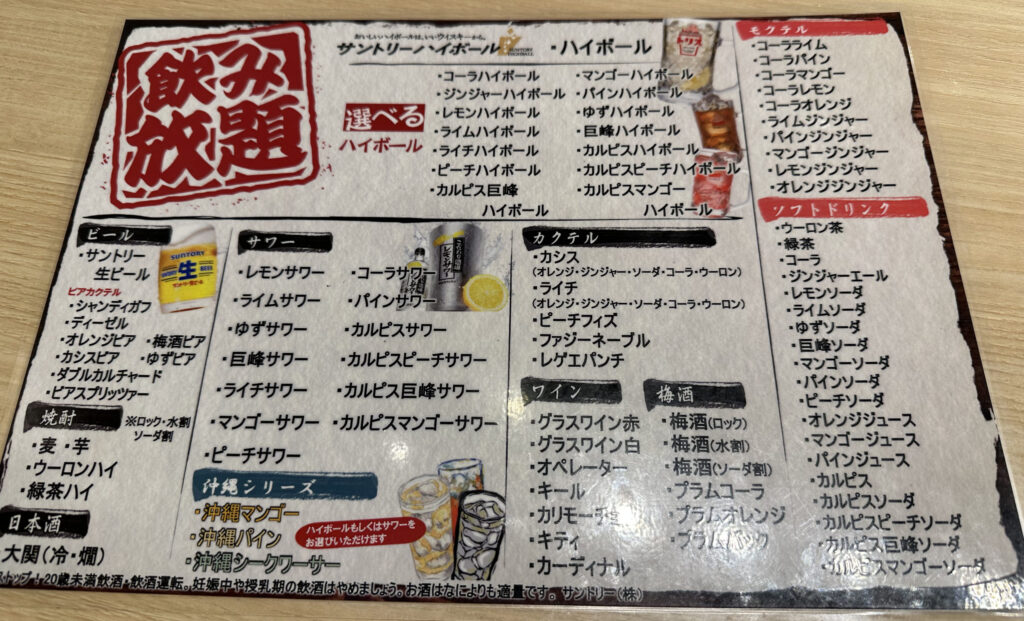 飲み
放題
おいしいハイボールは、いいウイスキーから。
サントリーハイボール
・ハイボール
トリス
選べる
ハイボール
・コーラハイボール
・ジンジャーハイボール
・レモンハイボール
・ライムハイボール
・ライチハイボール
・ピーチハイボール
・カルピス巨峰
ハイボール
・マンゴーハイボール
・パインハイボール
・ゆずハイボール
・巨峰ハイボール
・カルピスハイボール
・カルピスピーチハイボール
・カルピスマンゴー
ハイボール
モクテル
・コーラライム
・コーラパイン
・コーラマンゴー
・コーラレモン
・コーラオレンジ
・ライムジンジャー
・パインジンジャー
・マンゴージンジャー
・レモンジンジャー
・オレンジジンジャー
ソフトドリンク
・ウーロン茶
・緑茶
・コーラ
・ジンジャーエール
・レモンソーダ
・ライムソーダ
・ゆずソーダ
・巨峰ソーダ
・マンゴーソーダ
・パインソーダ
・ピーチソーダ
・オレンジジュース
・マンゴージュース
・パインジュース
・カルピス
・カルピスソーダ
・カルピスピーチソーダ
・カルピス巨峰ソーダ
・カルピスマンゴーソーダ
ビール
・サントリー
生ビール
SUNTORY
生
BEER
ビアカクテル
・シャンディガフ
・ディーゼル
・オレンジビア ・梅酒ビア
・カシスビア ・ゆずビア
・ダブルカルチャード
・ビアスプリッツァー
焼酎
※ロック・水割
ソーダ割
・麦 ・芋
・ウーロンハイ
・緑茶ハイ
日本酒
大関(冷・燗)
サワー
・レモンサワー
・ライムサワー
・ゆずサワー
・巨峰サワー
・ライチサワー
・マンゴーサワー
・ピーチサワー
・コーラサワー
・パインサワー
・カルピスサワー
・カルピスピーチサワー
・カルピス巨峰サワー
・カルピスマンゴーサワー
沖縄シリーズ
・沖縄マンゴー
・沖縄パイン
・沖縄シークワーサー
ハイボールもしくはサワーを
お選びいただけます
カクテル
・カシス
(オレンジ・ジンジャー・ソーダ・コーラ・ウーロン)
・ライチ
(オレンジ・ジンジャー・ソーダ・コーラ・ウーロン)
・ピーチフィズ
・ファジーネーブル
・レゲエパンチ
ワイン
・グラスワイン赤
・グラスワイン白
・オペレーター
・キール
・カリモーチョ
・キティ
・カーディナル
梅酒
・梅酒(ロック)
・梅酒(水割)
・梅酒(ソーダ割)
・プラムコーラ
・プラムオレンジ
・プラムバック
ストップ!20歳未満飲酒・飲酒運転。妊娠中や授乳期の飲酒はやめましょう。お酒はなによりも適量です。サントリー(株)